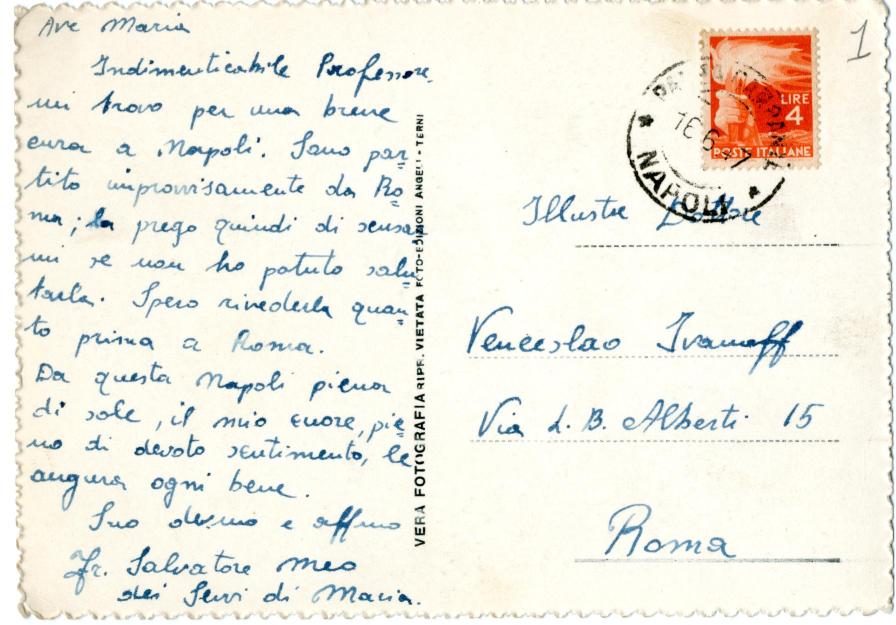 Ave Maria
Indimenticabile Professore,
mi trovo per una breve
cura a Napoli. Sono par=
tito improvvisamente da Ro=
ma; la prego quindi di scusar
mi se non ho potuto salu=
tarla. Spero rivederla quan=
to prima a Roma.
Da questa Napoli piena
di sole, il mio cuore, pie=
no di devoto sentimento, le
augura ogni bene.
Suo dev.mo e aff.mo
Fr. Salvatore Meo
dei Servi di Maria.
VERA FOTOGRAFIA RIPR. VIETATA FOTO-EDIZIONI ANGELI - TERNI
1
LIRE
4
POSTE ITALIANE
16 6
NAPOLI
Illustre Dottore
Venceslao Ivanoff
Via L. B. Alberti 15
Roma